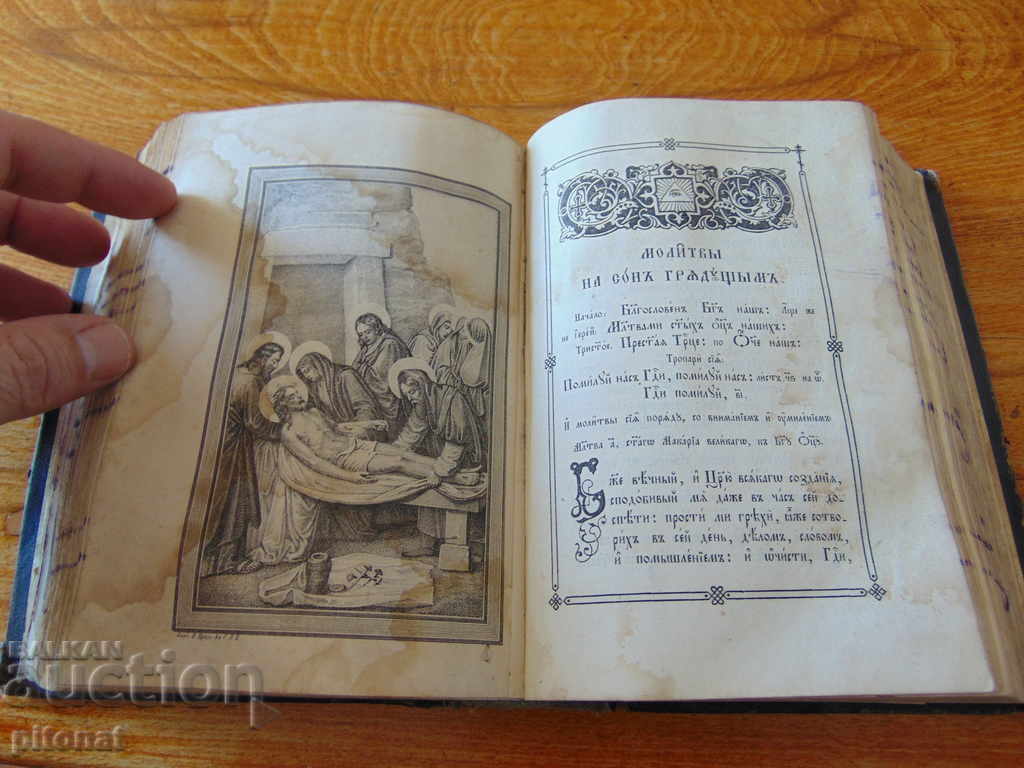 МОЛИ́ТВЫ
НА СО́НЪ ГРЯДꙋ́ЩЫМЪ.
Нача́ло: Бл҃гослове́нъ Бг҃ъ на́шъ: А́ще же
не і҆ере́й: Мл҃твами ст҃ы́хъ ѻ҆ц҃ъ на́шихъ:
Трист҃о́е. Прест҃а́ѧ Трⷪ҇це: по Ѻ҆́ч҃е на́шъ:
Тропари̑ сїѧ̑.
Поми́лꙋй на́съ Гдⷭ҇и, поми́лꙋй на́съ: ли́стъ на ѡ҆.
Гдⷭ҇и поми́лꙋй, в҃і.
И҆ моли̑твы сїѧ̑ порѧ́дꙋ, со внима́нїемъ и҆ ᲂу҆миле́нїемъ
Мл҃тва а҃, ст҃а́гѡ Мака́рїа вели́кагѡ, къ Бг҃ꙋ Ѻ҆ц҃ꙋ̀.
Бж҃е вѣ́чный, и҆ Цр҃ю̀ всѧ́кагѡ созда́нїѧ,
сподо́бивый мѧ̀ да́же въ ча́съ се́й до-
спѣ́ти: прости́ ми грѣхѝ, ꙗ҆̀же сотво-
ри́хъ въ се́й де́нь, дѣ́ломъ, сло́вомъ,
и҆ помышле́нїемъ: и҆ ѡ҆чи́сти, Гдⷭ҇и,
BALKAN
auction
pitonat